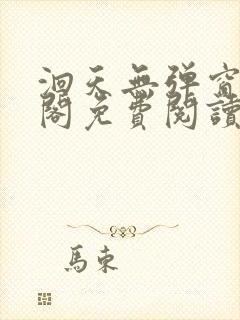 洄天無彈窗
閣免費閱讀
馬東